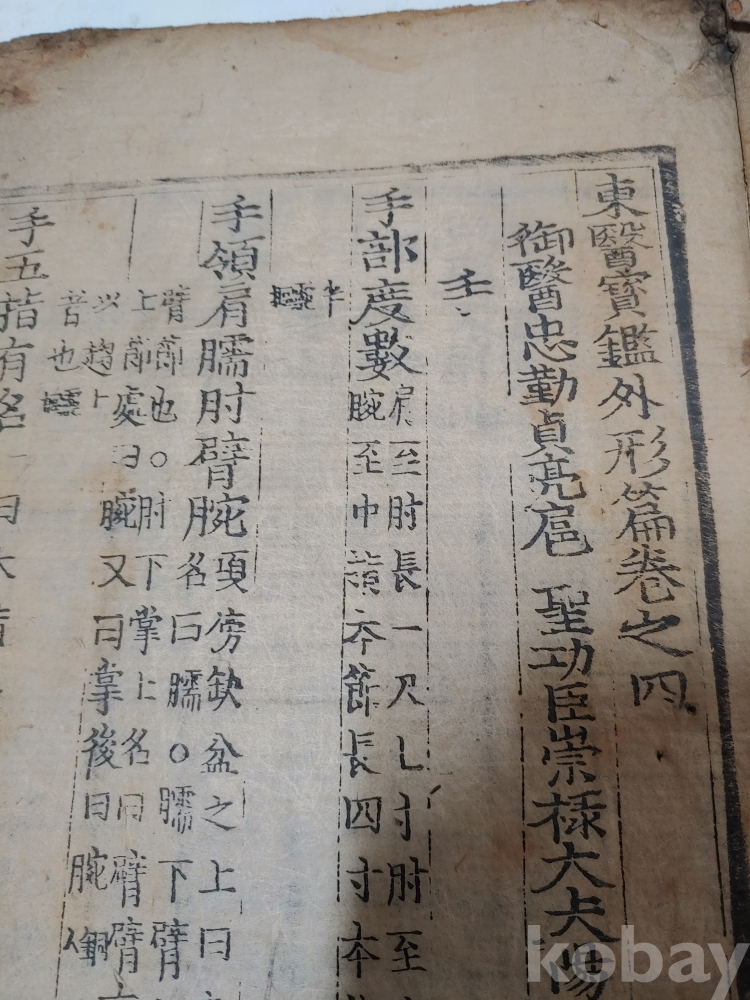 東醫寶鑑外形篇卷之四
御醫忠勤貞亮扈 聖功臣崇祿大夫陽
手
手部度數 肩至肘長一尺七寸肘至
腕至中指本節長四寸本
手領肩臑肘臂腕 項傍缺盆之上曰
名曰臑○臑下臂
臂節也○肘下掌上名曰臂臂
上節處曰腕又曰掌後曰腕 銅人
音也
手五指有名 一曰大指
kebay